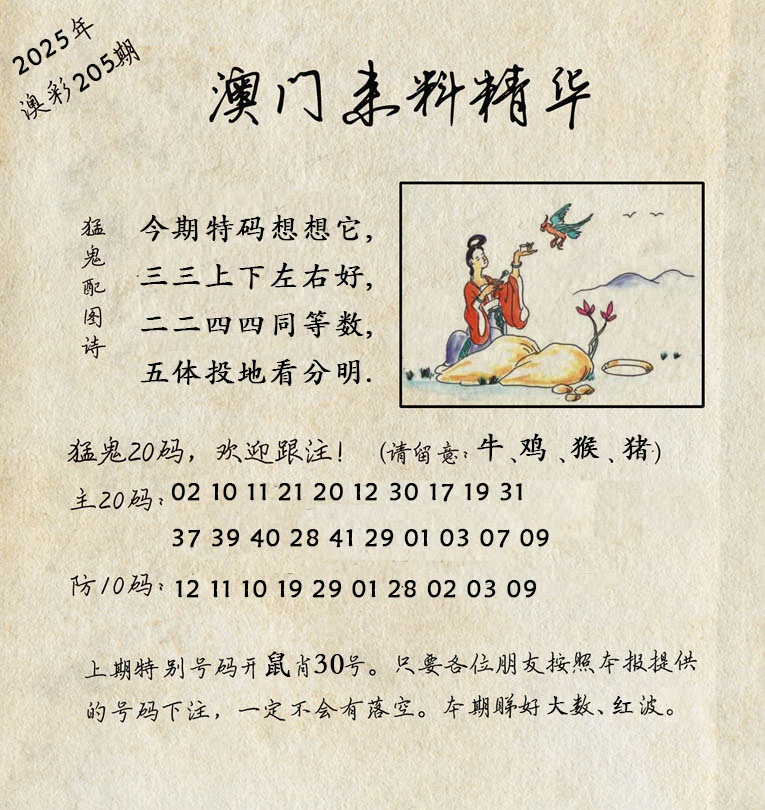 2025年
澳彩205期
澳门来料精华
猛鬼配图诗
今期特码想想它,
三三上下左右好,
二二四四同等数,
五体投地看分明.
猛鬼20码，欢迎跟注！（请留意：牛、鸡、猴、猪）
主20码：02 10 11 21 20 12 30 17 19 31
37 39 40 28 41 29 01 03 07 09
防10码：12 11 10 19 29 01 28 02 03 09
上期特别号码开鼠肖30号。只要各位朋友按照本报提供
的号码下注，一定不会有落空。本期睇好大数、红波。